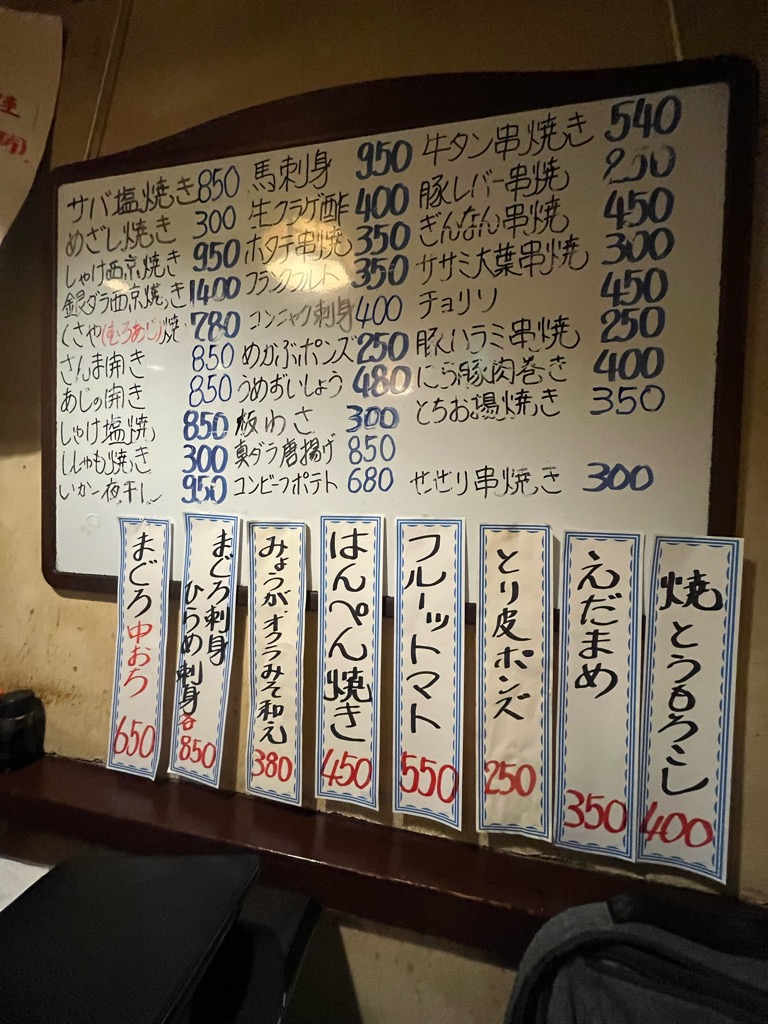 サバ塩焼き 850
めざし焼き 300
しゃけ西京焼き 950
銀ダラ西京焼き 1400
くさや(むろあじ)焼 780
さんま開き 850
あじの開き 850
しゃけ塩焼 850
ししゃも焼き 300
いか一夜干し 950
馬刺身 950
生クラゲ酢 400
ホタテ串焼 350
フランクフルト 350
コンニャク刺身 400
めかぶポンズ 250
うめずいしょう 480
板わさ 300
真ダラ唐揚げ 850
コンビーフポテト 680
牛タン串焼き 540
豚レバー串焼 250
ぎんなん串焼 450
ササミ大葉串焼 300
チョリソ 450
豚ハラミ串焼 250
にら豚肉巻き 400
とちお揚焼き 350
せせり串焼き 300
まぐろ中おち
650
まぐろ刺身
ひらめ刺身各
850
みょうが、オクラみそ和え
380
はんぺん焼き
450
フルーットマト
550
とり皮ポンズ
250
えだまめ
350
焼とうもろこし
400